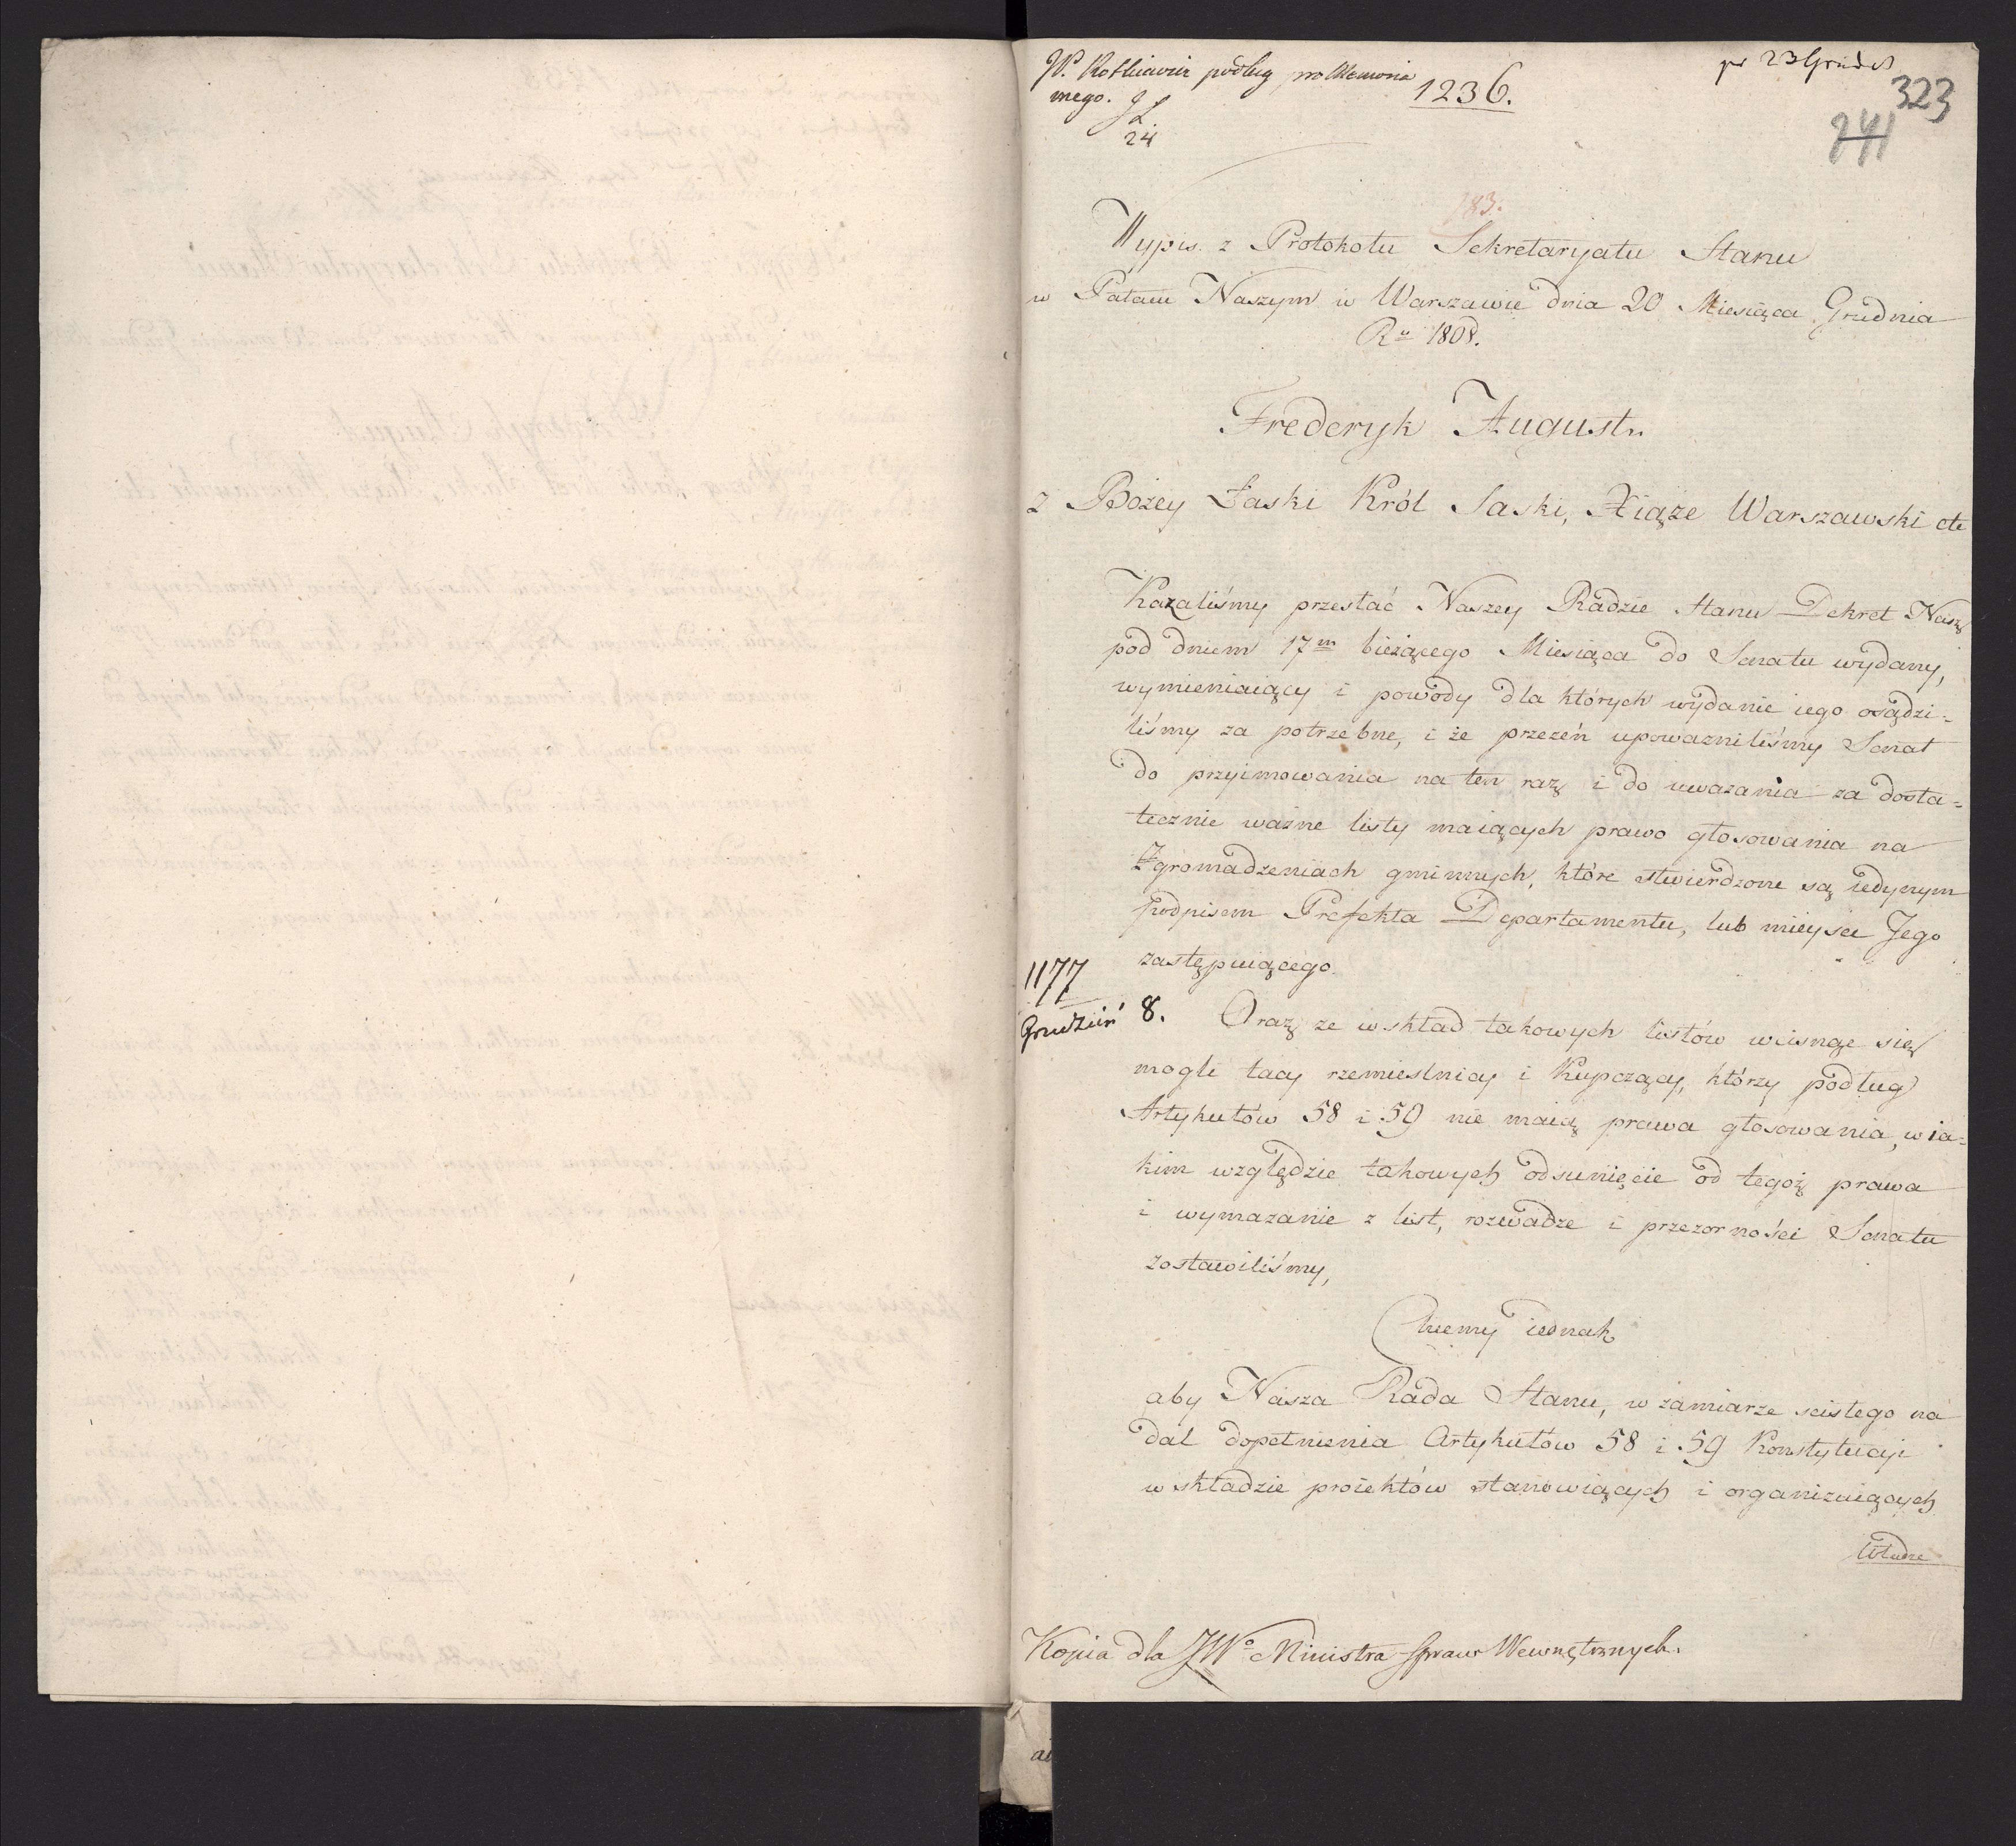 W. podług
mego.
24
1236.
pr 23 Grud
323
241
183.
Wypis z Protokołu Sekretaryatu Stanu
w Pałacu Naszym w Warszawie dnia 20 Miesiąca Grudnia
Ru 1808.
Frederyk August
z Bożey Łaski Król Saski, Xiąże Warszawski etc
Kazaliśmy przesłać Naszey Radzie Stanu Dekret Nasz
pod dniem 17m bieżącego Miesiąca do Senatu wydany,
wymieniaiący i powody dla których wydanie iego osądzi=
liśmy za potrzebne, i że przezeń upoważniliśmy Senat
do przyimowania na ten raz i do uważania za dosta=
tecznie ważne listy maiących prawo głosowania na
Zgromadzeniach gminnych, które stwierdzone są iedynym
podpisem Prefekta Departamentu, lub mieysce Jego
zastępuiącego.
1177
Grudzień 8. Oraz że w skład takowych listów wcisnąc się
mogli tacy rzemieslnicy i Kupczący, którzy podług
Artykułów 58 i 59 nie maią prawa głosowania, w ia=
kim względzie takowych odsunięcie od tegoż prawa
i wymazanie z list, rozwadze i przezorności Senatu
zostawiliśmy,
Chcemy iednak
aby Nasza Rada Stanu, w zamiarze scisłego na
dal dopełnienia Artykułów 58 i 59 Konstytucyi
w składzie proiektów stanowiących i organizuiących
Władze
Kopia dla JWo Ministra Spraw Wewnętrznych.